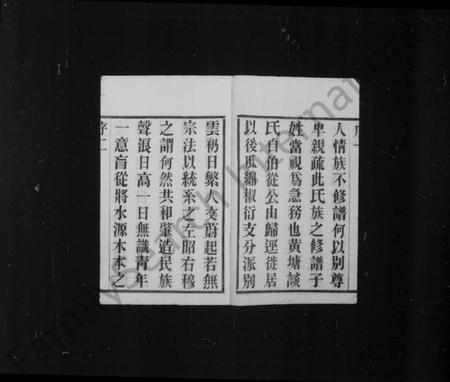 序一
人情族不修譜何以別尊
卑親疏此氏族之修譜子
姓當視為急務也黃塘談
氏自伯從公由歸逕徙居
以後瓜綿椒衍支分派別
雲礽日繁人文蔚起若無
宗法以統系之左昭右穆
之謂何然共和肇造民族
聲浪日高一日無識靑年
一意盲從將水源木本之
序二
FamilySearch International